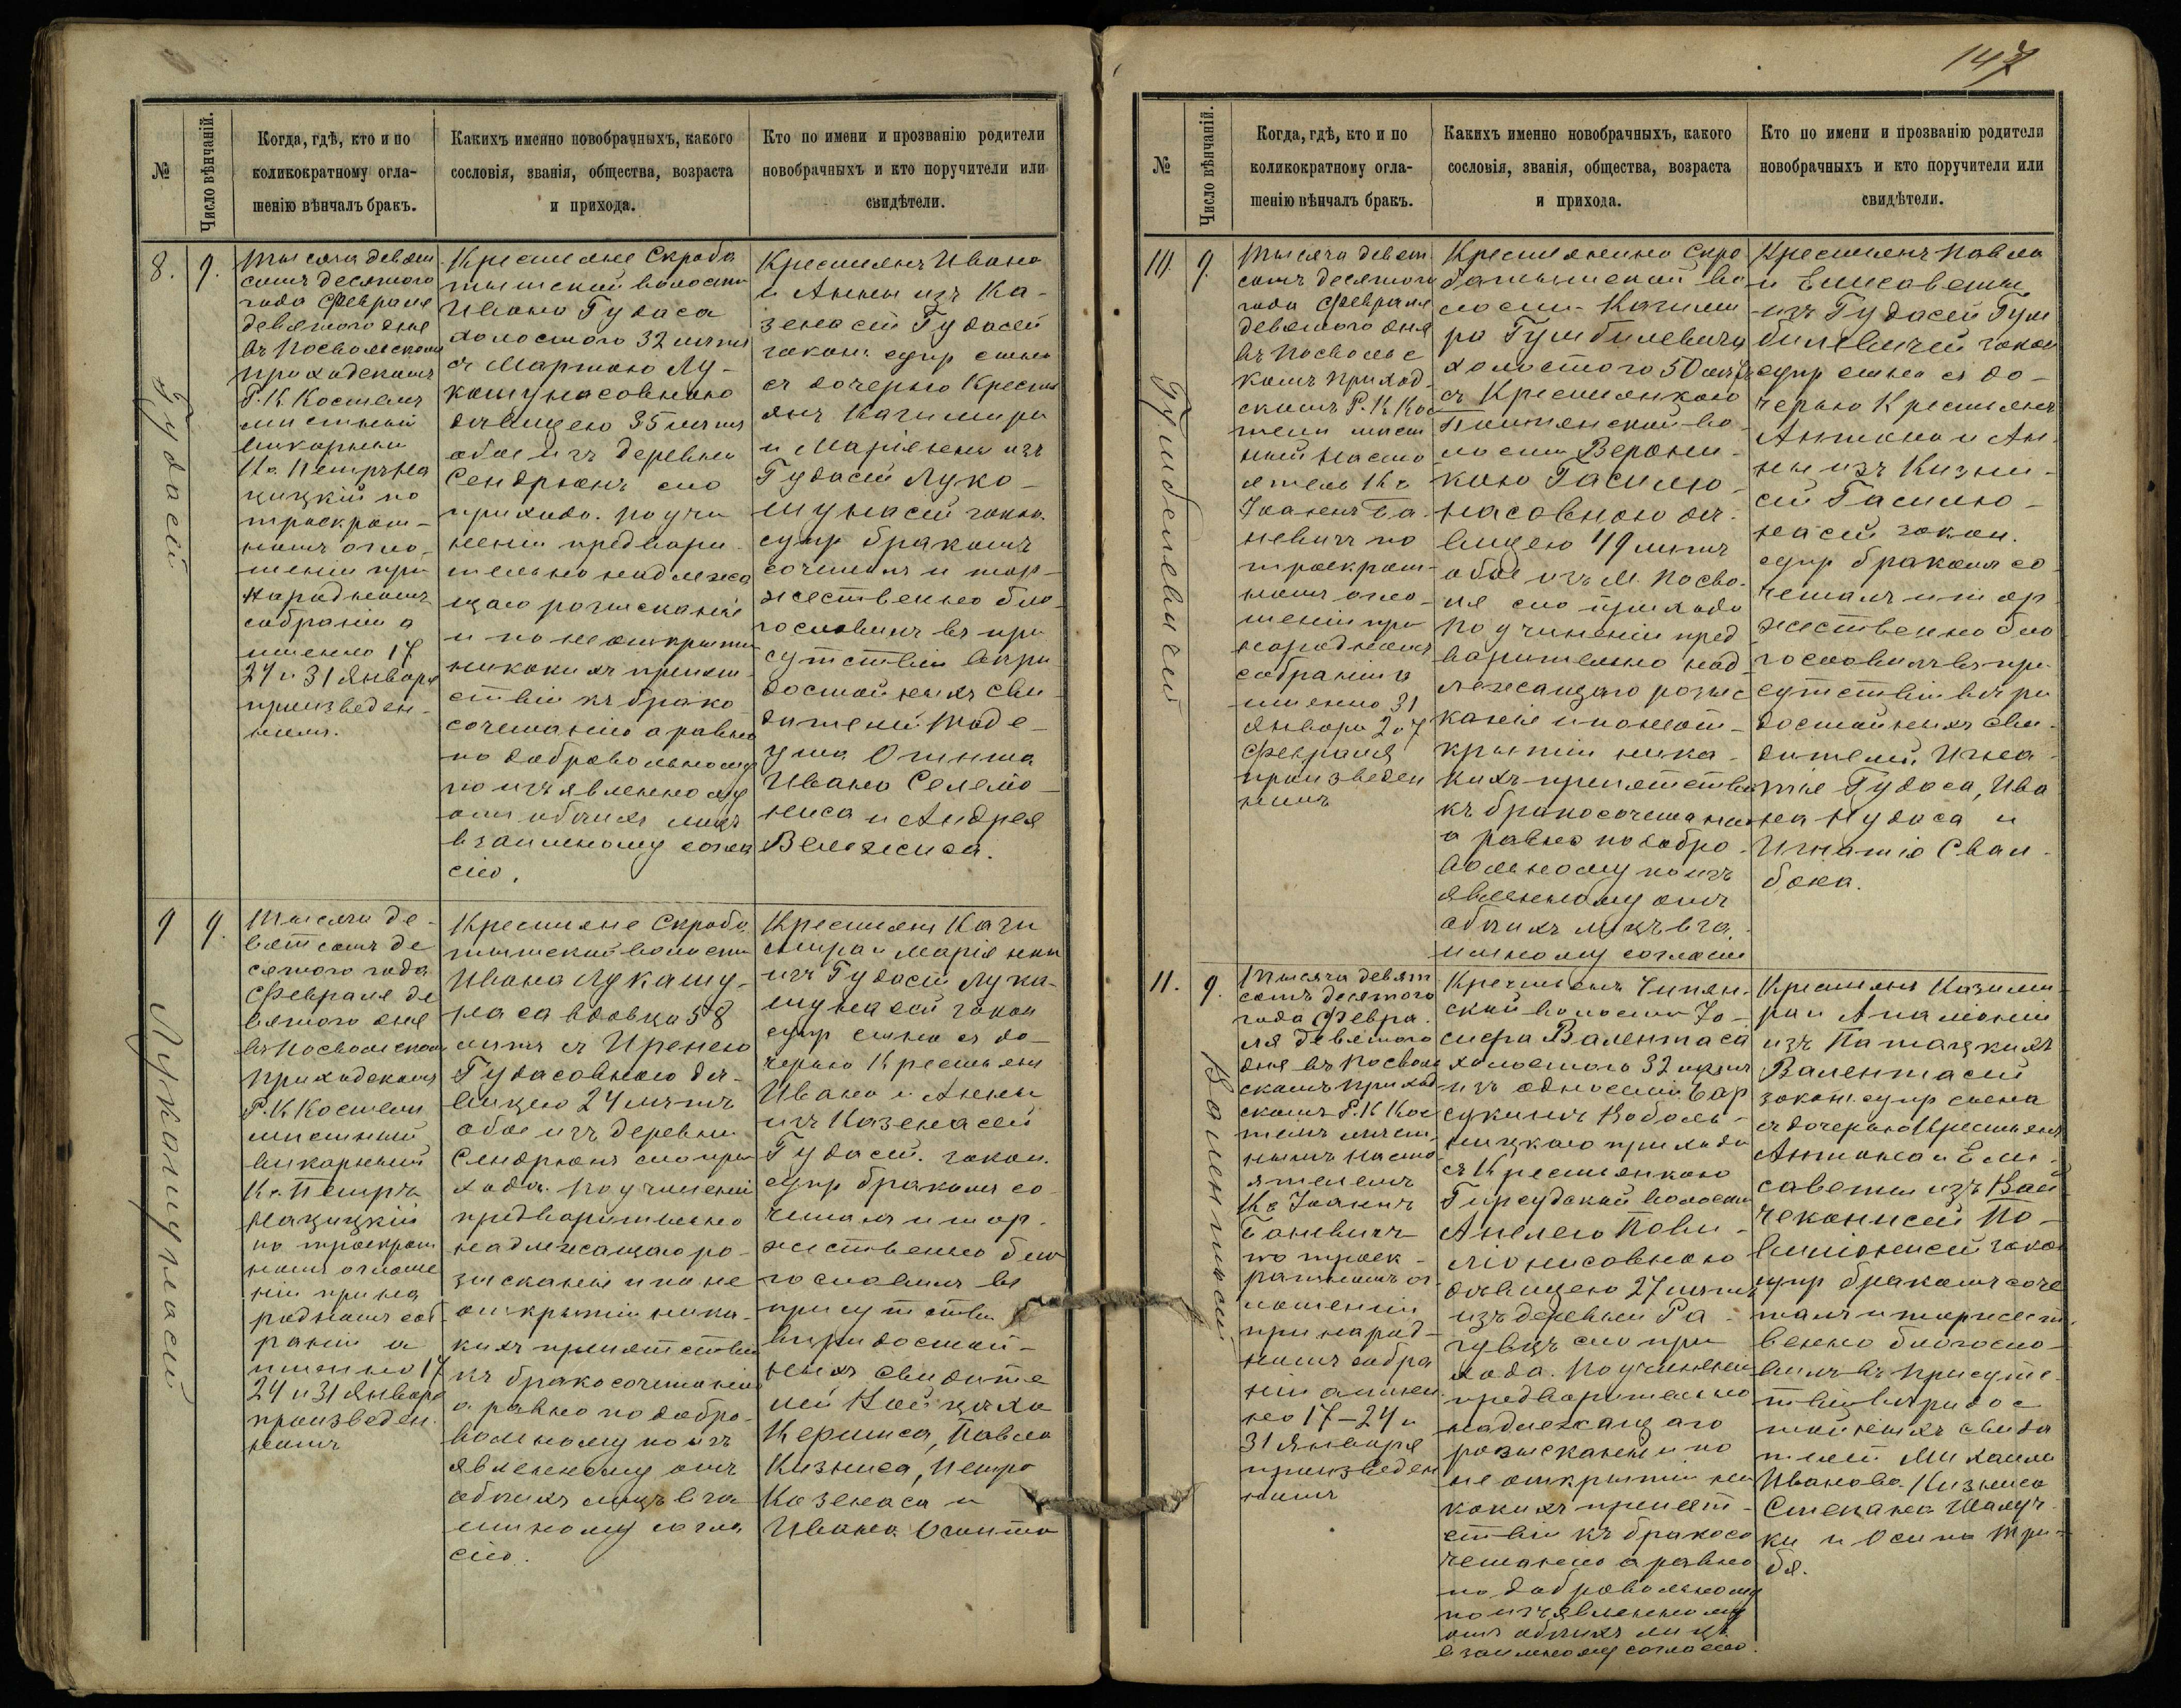 147
№
Число вѣнчаній.
Когда, гдѣ, кто и по
коликократному огла-
шенію вѣнчалъ бракъ.
Какихъ именно новобрачныхъ, какого
сословія, званія, общества, возраста
и прихода.
Кто по имени и прозванію родители
новобрачныхъ и кто поручители или
свидѣтели.
8.
9.
Гудасъ
Тысяча девят
сотъ десятого
года Февраля
девятого дня
въ Посвольскомъ
приходскомъ
Р. К. Костелѣ
мѣстный
викарный
Кс. Петръ На
цицкій по
троекрат-
номъ огло-
шеніи при
народномъ
собраніи а
именно 17
24 и 31 Января
произведен-
номъ.
Крестьяне Скроба
тишской волости
Ивана Гудаса
холостого 32 лѣтъ
съ Мартою Лу-
кошунасовною
дѣвицею 35 лѣтъ
обое изъ деревни
Сендрюнъ сего
прихода. по учи
неніи предвари-
тельно надлежа
щаго розысканія
и по неоткрытіи
никакихъ препят
ствій къ брако
сочетанію а равно
по добровольному
по изъявленному
отъ обоихъ лицъ
взаимному согла
сію.
Крестьянъ Ивана
и Анны изъ Ка-
зенасей Гудасей
закон. супр сына
съ дочерью Крестья
янъ Казимира
и Маріянны изъ
Гудасей Луко-
шунасей закон.
супр бракомъ
сочеталъ и тор-
жественно бла-
гословилъ въ при
сутствіи вѣро-
достойныхъ сви
дѣтелей Таде-
уша Ошита
Ивана Селемо-
ниса и Андрея
Веложиса.
9
9.
Лукашунасъ
Тысяча де-
вятсотъ де
сятого года
Февраля де
вятого дня
въ Посвольскомъ
приходскомъ
Р. К Костели
мѣстный
викарный
Кс. Петръ
Нацицкій
по троекрат
номъ оглаше
ніи при на
родномъ соб-
раніи а
именно 17
24 и 31 Января
произведен-
номъ
Крестьяне Скроба
тишской волости
Ивана Лукашу-
наса вдовца 58
лѣтъ съ Иреною
Гудасовною дѣ-
вицею 24 лѣтъ
обое изъ деревни
Сендрюнъ сего при
хода. По учиненіи
предварительно
надлежащаго ро-
зысканія и по не
открытіи ника-
кихъ препятствій
къ бракосочетанію
а равно по добро-
вольному по изъ
явленному отъ
обоихъ лицъ вза
имному согла
сію.
Крестьянъ Кази
мира и Маріянны
изъ Гудасей Лука-
шунасей закон
супр сына съ до-
черью Крестьянъ
Ивана и Анны
изъ Казенасей
Гудасей. закон.
супр бракомъ со-
четалъ и тор-
жественно бла
гословилъ въ
присутствіи
вѣродостой-
ныхъ свидѣте
лей Войцеха
Кериса, Павла
Кизниса, Петра
Козенаса и
Ивана Ошита
№
Число вѣнчаній.
Когда, гдѣ, кто и по
коликократному огла-
шенію вѣнчалъ бракъ.
Какихъ именно новобрачныхъ, какого
сословія, званія, общества, возраста
и прихода.
Кто по имени и прозванію родители
новобрачныхъ и кто поручители или
свидѣтели.
10.
9.
Гумбилевичей
Тысяча девят
сотъ десятого
года Февраля
девятого дня
въ Посвольс
комъ приход-
скомъ Р. К Кос
тели мѣст
ный насто
ятель Кс
Іоаннъ Ба-
невичъ по
троекрат-
номъ огло-
шеніи при
народномъ
собраніи а
именно 31
Января 2 и 7
Февраля
произведен
номъ
Крестьянина Скро
батышской во
лости Казими
ра Гумбилевича
холостого 50 лѣтъ
съ Крестьянкою
волости Верони-
кою Гасилю-
насовною дѣ-
вицею 49 лѣтъ
обое изъ м. Посво-
ля сего прихода
по учиненіи пред
варительно над
лежащаго розыс
канія и по неот-
крытіи ника-
кихъ препятствій
къ бракосочетанію
а равно по добро-
вольному по изъ
явленному отъ
обоихъ лицъ вза
имному согласію
Крестьянъ Павла
и Елисаветы
изъ Гудасей Гум
билевичей закон
супр сына съ до-
черью Крестьянъ
Антона и Ан-
ны изъ Кизни-
сей Гасилю-
насей закон.
супр бракомъ со
четалъ и тор
жественно бла
гословилъ въ при-
сутствіи вѣро
достойныхъ сви-
дѣтелей Игна-
тія Гудаса, Ива
на Пудаса и
Игнатія Свам-
бока.
11.
9.
Валентасъ
Тысяча девят
сотъ десятого
года Февра-
ля девятого
дня въ Посволь
скомъ приход
скомъ Р. К Кос
телѣ мѣст
нымъ насто
ятелемъ
Кс Іоаннъ
Баневичъ
по троек-
ратномъ ог
лошеніи
при народ-
номъ собра
ніи а имен
но 17-24 и
31 Января
произведен
номъ
Крестьянъ Чипян-
ской волости Іо-
сифа Валентаса
холостого 32 лѣтъ
изъ односелій Бар
сукинъ Вабольн-
ицкаго прихода
съ Крестьянкою
Гирсудской волости
Анелею Пови-
ліонисовною
дѣвицею 27 лѣтъ
изъ деревни Ра-
гувцъ сего при
хода. По учиненіи
предварительно
надлежащаго
розысканія и по
не открытіи ни
какихъ препят-
ствій къ бракосо
четанію а равно
по добровольному
по изъявленному
отъ обоихъ лицъ
взаимному согласію.
Крестьянъ Казими-
ра и Аполоніи
изъ Патацкихъ
Валентасей
закон. супр сына
съ дочерью Крестьянъ
Антона и Ели-
саветы изъ Вай
чеконисей По-
виліонисей закон
супр бракомъ соче
талъ и торжест-
венно благосло-
вилъ въ присутс-
твіи вѣродос
тойныхъ свидѣ
телей Михаила
Иванова. Кизниса
Степана Шалуч-
ки и Осипа Три-
бя.